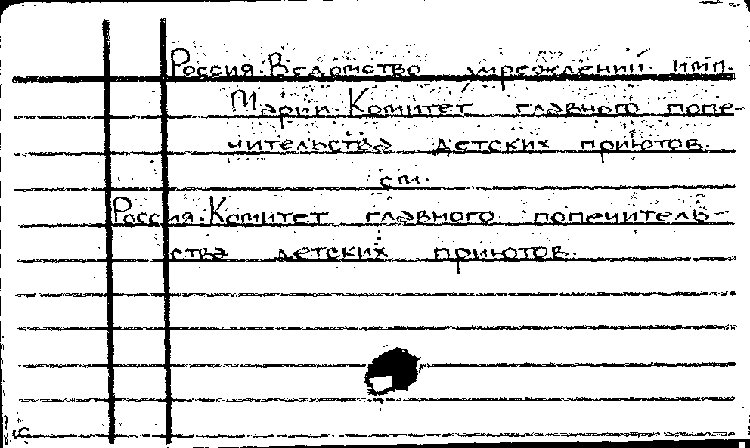 Россия. Ведомство учреждений имп.
Марии. Комитет главного попе-
чительства детских приютов.
см.
Россия. Комитет главного попечитель-
ства детских приютов.